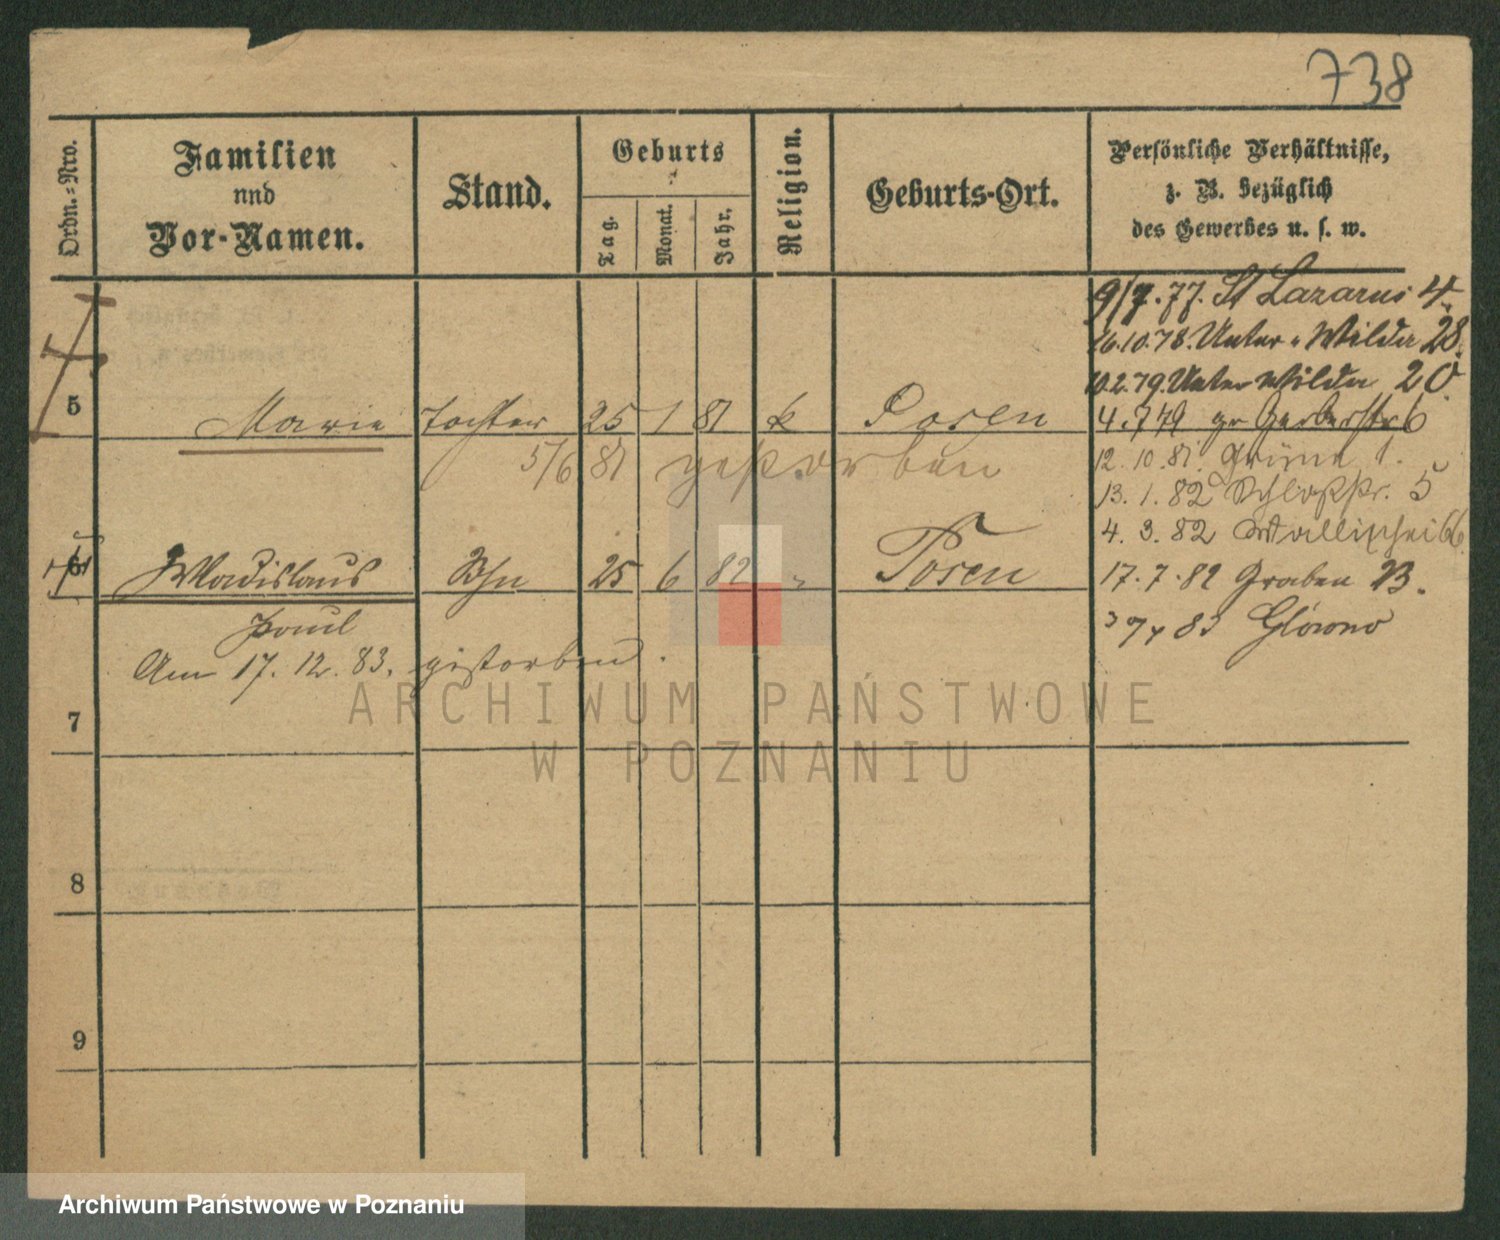 738
Ordn.-Nro.
Familien
nnd
Vor-Namen.
Stand.
Geburts
Tag.
Monat.
Jahr.
Religion.
Geburts-Ort.
Persönliche Verhältnisse,
z. B. bezüglich
des Gewerbes u. s. w.
9/7.77. St Lazarus 4
26.10.78. Unter-Wilda 28.
10.2.79. Unter Wilda 20
5 Marie Tochter 25 1 81 k Posen
4.7.79 gr Gerberstr 6
5/6 81 gestorben
12. 10. 81. Grüne 1.
13. 1. 82 Schloßstr. 5
4. 3. 82 Wallischei 66
6 Wladislaus Sohn 25 6 82 " Posen
17. 7. 82 Graben 13.
Paul
83 Glówno
Am 17. 12. 83. gestorben.
7
8
9
ARCHIWUM PAŃSTWOWE
W POZNANIU
Archiwum Państwowe w Poznaniu